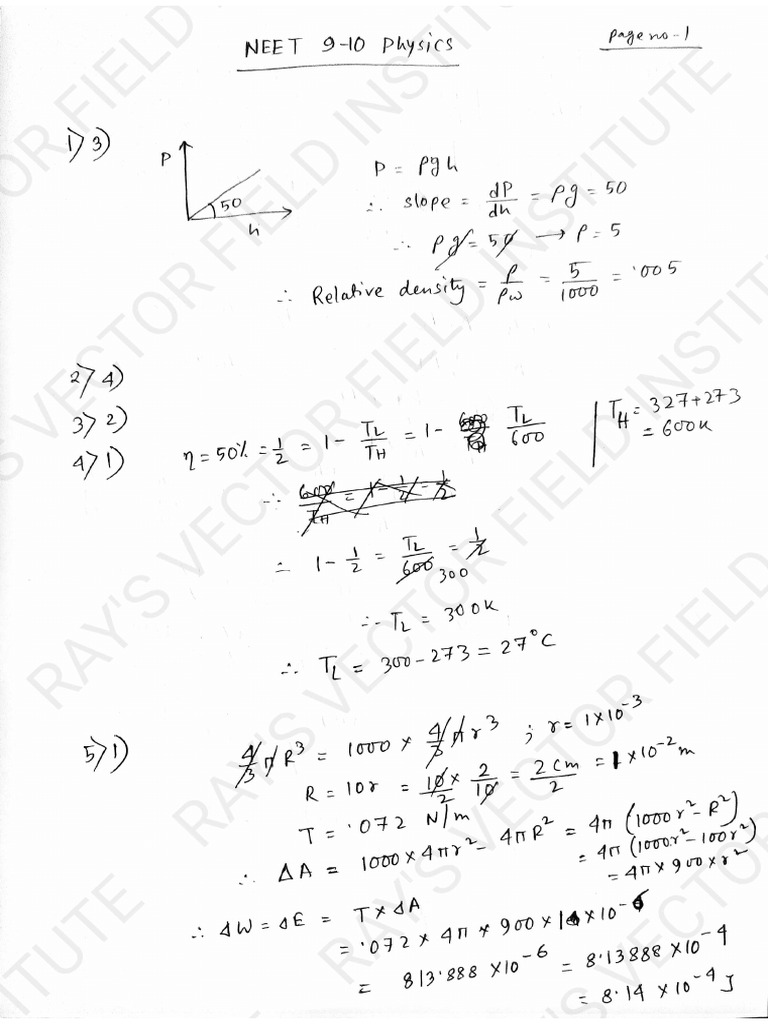 NEET 9-10 Physics
Page no-1
1> 3)
P
50
h
P = ρgh
∴ slope = dP/dh = ρg = 50
∴ ρg = 50 → ρ = 5
∴ Relative density = ρ/ρw = 5/1000 = ·005
2> 4)
3> 2)
4> 1)
η = 50% = 1/2 = 1 - TL/TH = 1 - TL/600
TH = 327+273
= 600K
∴ 1 - 1/2 = TL/600 = 1/2
300
∴ TL = 300K
∴ TL = 300 - 273 = 27°C
5> 1)
4/3 π R³ = 1000 × 4/3 π r³ ; r = 1×10⁻³
R = 10r = 10/2 × 2/10 = 2cm/2 = 1 × 10⁻² m
T = ·072 N/m
∴ ΔA = 1000 × 4πr² - 4πR² = 4π (1000r² - R²)
= 4π (1000r² - 100r²)
= 4π × 900 × r²
∴ ΔW = ΔE = T × ΔA
= ·072 × 4π × 900 × 1 × 10⁻⁶
= 813·888 × 10⁻⁶ = 8·13888 × 10⁻⁴
= 8·14 × 10⁻⁴ J
RAY'S VECTOR FIELD INSTITUTE